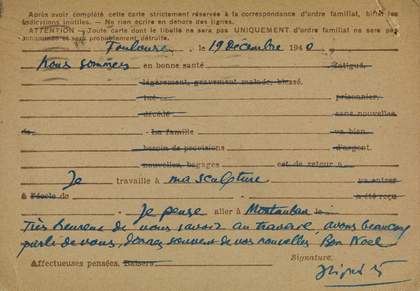 Après avoir complété cette carte strictement réservée à la correspondance d'ordre familial, biffer les
indications inutiles. — Ne rien écrire en dehors des lignes.
ATTENTION — Toute carte dont le libellé ne sera pas UNIQUEMENT d'ordre familial ne sera pas
acheminée et sera probablement détruite.
Toulouse, le 19 décembre 1940
Nous sommes en bonne santé fatigué.
légèrement, gravement malade, blessé.
tué prisonnier.
décédé sans nouvelles
de La famille va bien.
besoin de provisions d'argent.
nouvelles, bagages est de retour à
Je travaille à ma sculpture va entrer
à l'école de a été reçu
Je pense aller à Montauban le
Très heureux de vous savoir au travail, avons beaucoup
parlé de vous, donnez souvent de vos nouvelles Bon Noel
Affectueuses pensées. Baisers.
Signature.